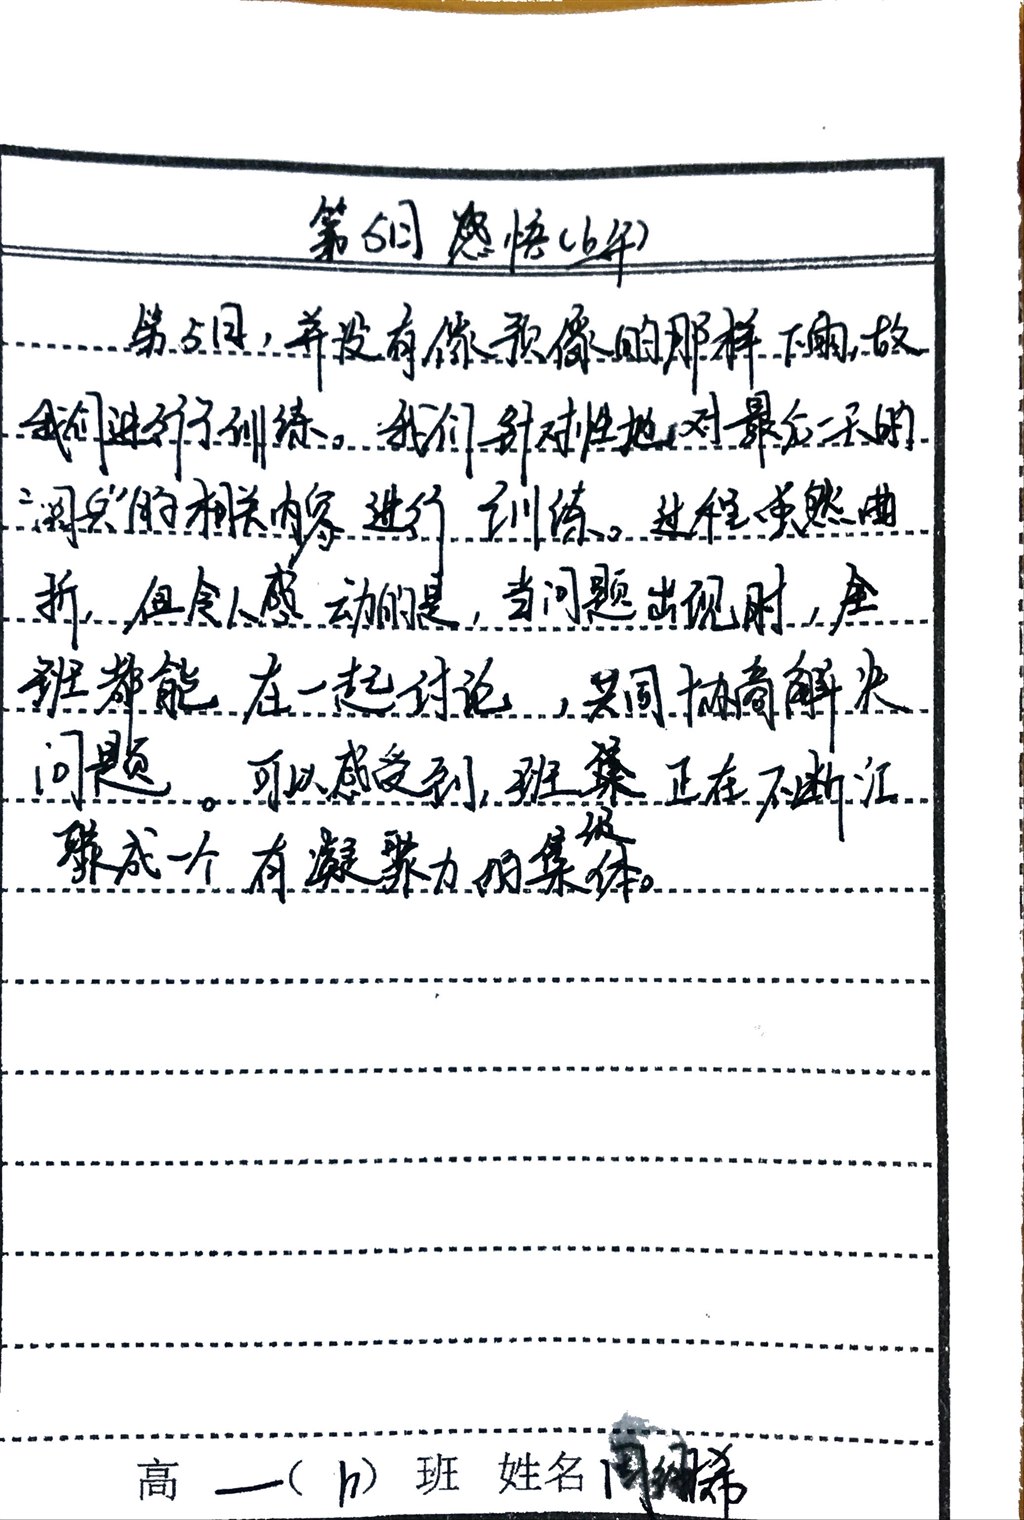 第5日 感悟(上午)
第5日，并没有像预像的那样下雨，故
我们进行训练。我们针对性地对最后一天的
“阅兵”的相关内容进行 训练。过程虽然曲
折，但令人感动的是，当问题出现时，全
班都能 在一起讨论，共同协商解决
问题。可以感受到，班集正在不断汇
级
聚成一个 有凝聚力的集体。
高一( ) 班 姓名 周